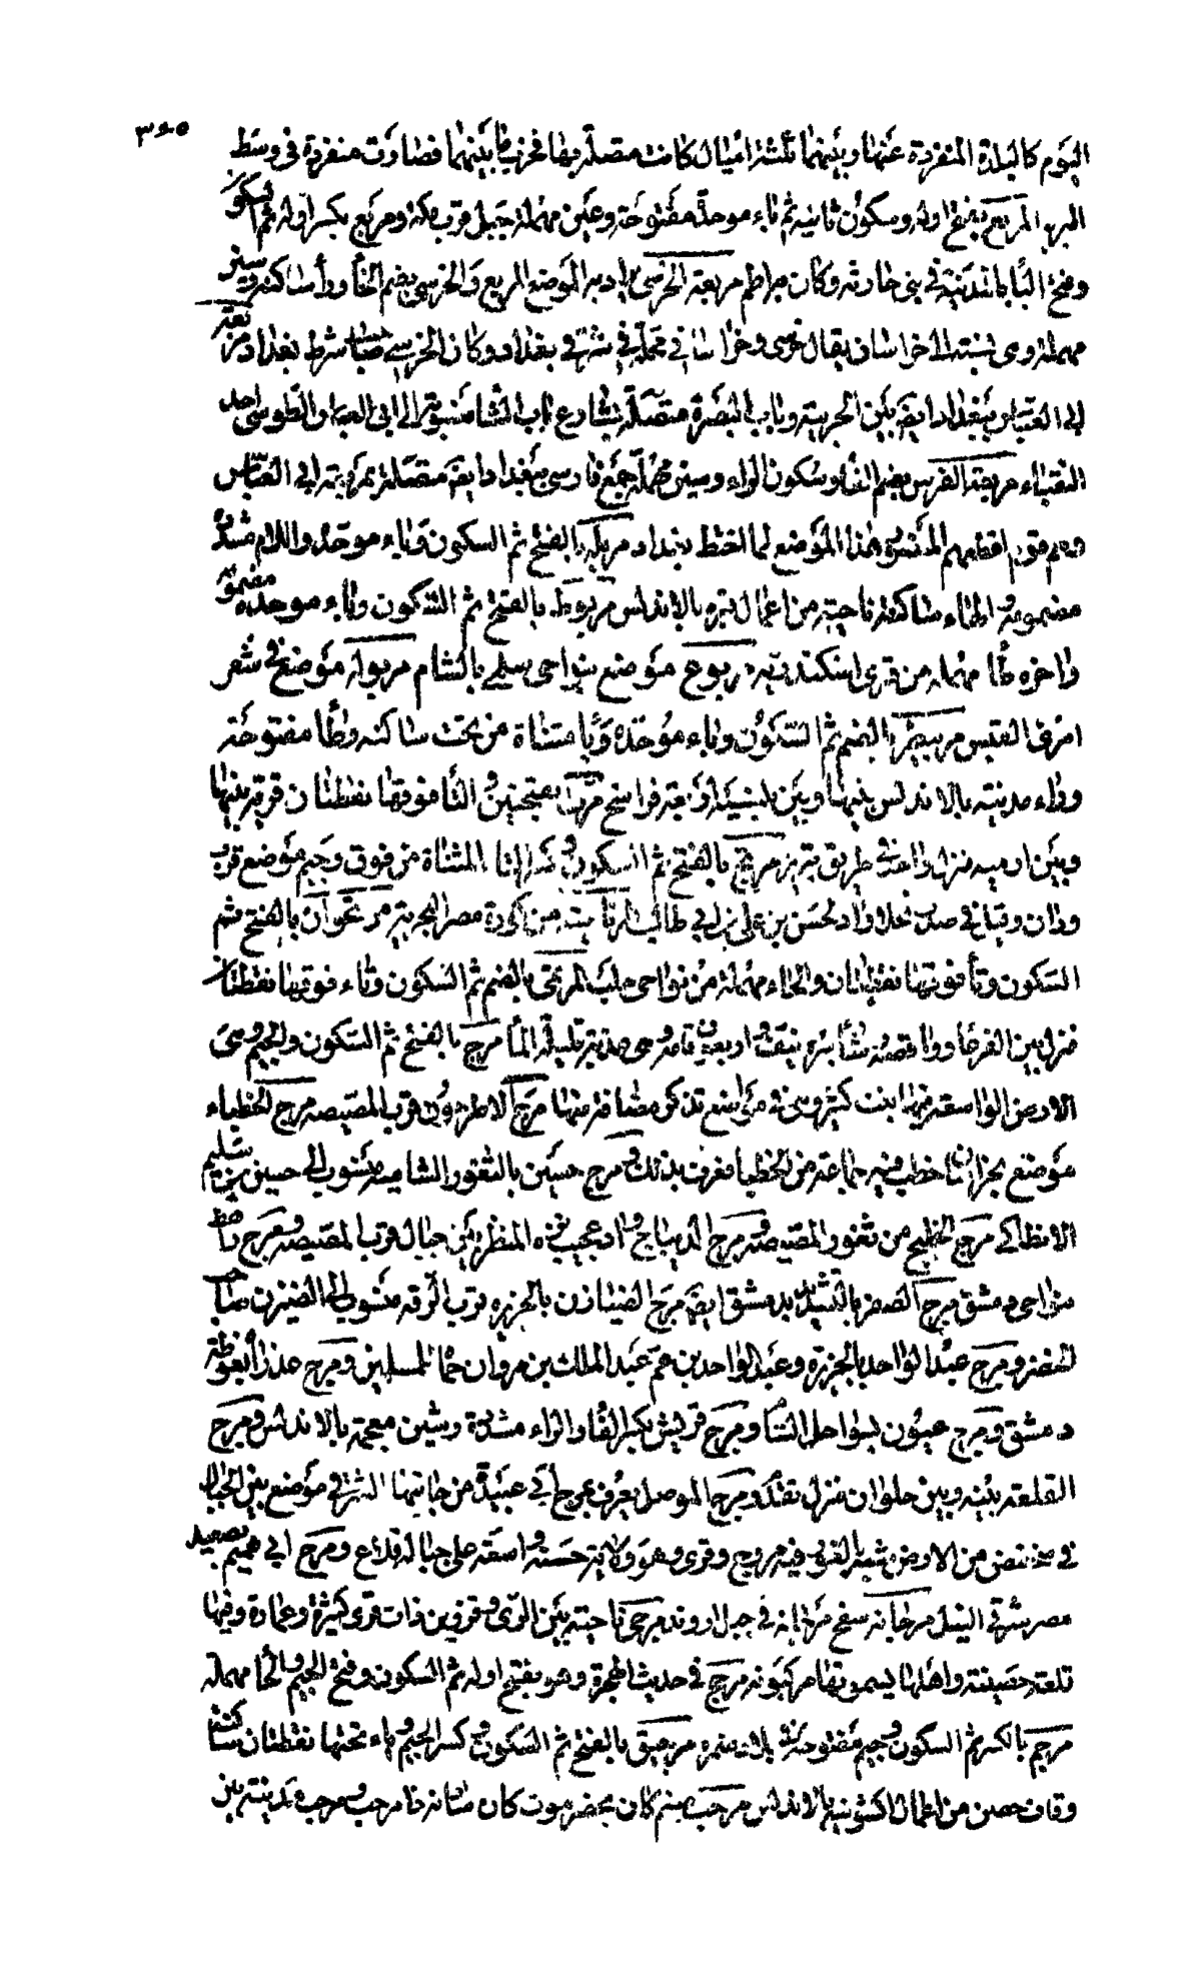 ٣٤٥
اليوم كالبلدة المنفردة عنها وبينهما ثلثة اميال كانت متصلة بها فخرب ما بينهما فصارت منفردة في وسط
البر المربع بفتح اوله وسكون ثانيه ثم باء موحدة مفتوحة وعين مهملة جبل قرب مكة ومربع بكسر اوله ثم السكون
وفتح الباء بالمدينة في بني حارثة وكان به اطم مربعة الخرسي يراد به الموضع المربع والخرسي بضم الخاء وراء ساكنة وسين
مهملة وى نسبة الى خراسان يقال خرسي وخراساني محلة في شرقي بغداد وكان الخرسي صاحب شرط بغداد مربعة
ابي العباس ببغداد ايضا بين الحربية وباب البصرة متصلة بشارع باب الشام منسوبة الى ابي العباس الطوسي احد
النقباء مربعة الفرس بضم الفاء وسكون الراء وسين مهملة جمع فارسي ببغداد ايضا متصلة بمربعة ابي العباس
وهم قوم اقطعهم المنصور هذا الموضع لما اختط بغداد مربلة بالفتح ثم السكون وباء موحدة واللام مشددة
مضمومة والهاء ساكنة ناحية من اعمال قبره بالاندلس مربوط بالفتح ثم السكون وباء موحدة مضمومة
واخره طاء مهملة من قرى اسكندرية مربوع موضع بنواحي سلمية بالشام مربولة موضع في شعر
امرئ القيس مربيطر بالضم ثم السكون وباء موحدة وياء مثناة من تحت ساكنه وطاء مفتوحة
وراء مدينة بالاندلس بينها وبين بلنسية اربعة فراسخ مرتب بفتحتين والتاء فوقها نقطتان قرية بينها
وبين ارمية منزل واحد في طريق تبريز مرتج بالفتح ثم السكون وكسر التاء المثناة من فوق وجيم موضع قرب
ودان وقيل في صدر نخلا واد لحسن بن علي بن ابي طالب مرتا بيت من كورة مصر البحرية مرتحوان بالفتح ثم
السكون وتاء فوقها نقطتان والحاء مهملة من نواحي حلب المرتمى بالضم ثم السكون وتاء فوقها نقطتان
منزل بين القرعاء وواقصة بئارا نيف واربعون قامة وهي عذبة قليلة الماء مرج بالفتح ثم السكون والجيم وهي
الارض الواسعة فيها نبت كثير وهي في مواضع تذكر مضافة منها مرج الاطراخون قرب المصيصة مرج الخطباء
موضع بخراسان خطب فيه جماعة من الخطباء فعرف بذلك ومرج حسين بالثغور الشامية منسوب الى حسين بن سليم
الانطاكي مرج الخليج من ثغور المصيصة ومرج الديباج واد عجيب نزه المنظر بين جبال قرب المصيصة ومرج راهط
بنواحي دمشق مرج الصفر بالتشديد بدمشق ايضا مرج الضيازن بالجزيرة قرب الرقة منسوب الى الضيزن صاحب
الحضر ومرج عبد الواحد بالجزيرة وعبد الواحد بن عم عبد الملك بن مروان حماه للمسلمين ومرج عذراء بغوطة
دمشق ومرج عيون بسواحل الشام ومرج فريش بكسر الفاء والراء مشددة وشين معجمة بالاندلس ومرج
القلعة بينه وبين حلوان منزل ومرج الموصل يعرف بمرج ابي عبيدة من جانبها الشرقي موضع بين الجبال
في منخفض من الارض شبيه بالغور فيه مروج وقرى وهو ولاية حسنة واسعة على جباله قلاع ومرج ابي هميم بصعيد
مصر شرقي النيل مرجانة سفح مرجانة في جبل اروند مرجى ناحية بين الري وقزوين ذات قرى كثيرة وعمارة وفيها
قلعة حصينة واهلها يسمونها مركبونه مرجح في حديث الهجرة وهو بفتح اوله ثم السكون وفتح الجيم والحاء مهملة
مرجم بالكسر ثم السكون وجيم مفتوحة بلاد ضمرة مرجيق بالفتح ثم السكون وكسر الجيم وياء تحتها نقطتان ساكنة
وقاف حصن من اعمال اكشونية بالاندلس مرحب صنم كان بحضرموت كان سادنه ذا مرحب ومرحب مدينة بين